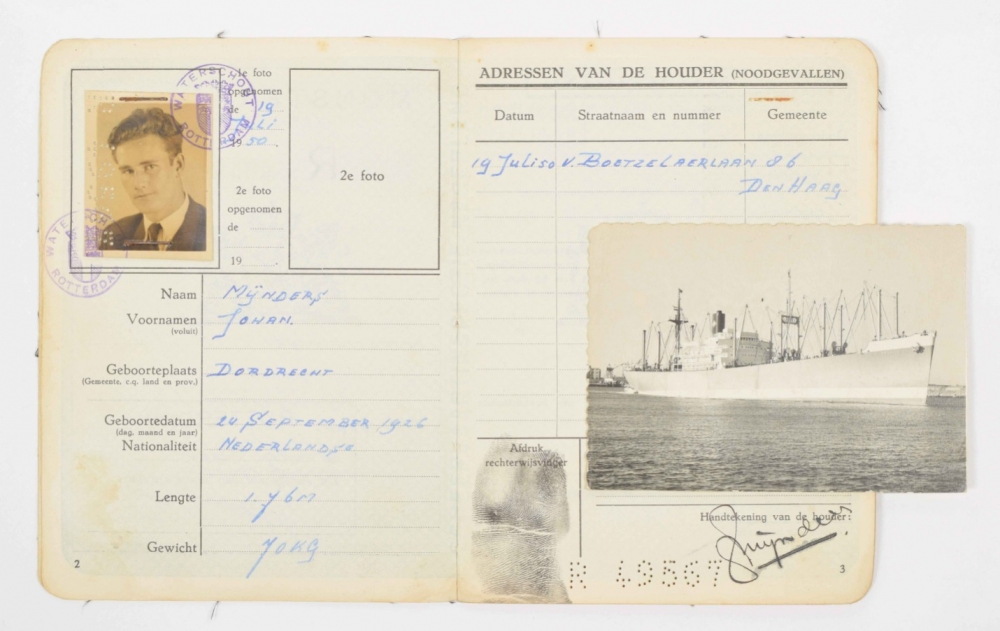 1e foto
opgenomen
de 19
Juli
1950.
2e foto
opgenomen
de
19
2e foto
WATERSCHOUT
ROTTERDAM
WATERSCHOUT
ROTTERDAM
Naam MIJNDERS
Voornamen JOHAN.
(voluit)
Geboorteplaats DORDRECHT
(Gemeente, c.q. land en prov.)
Geboortedatum 24 SEPTEMBER 1926
(dag, maand en jaar)
Nationaliteit NEDERLANDSE
Lengte 1.76M
Gewicht 70KG
2
ADRESSEN VAN DE HOUDER (NOODGEVALLEN)
Datum Straatnaam en nummer Gemeente
19 Juli 50 V. BOETZELAERLAAN 86
DEN HAAG
Afdruk
rechterwijsvinger
Handtekening van de houder:
Mijnders
R 49567
3